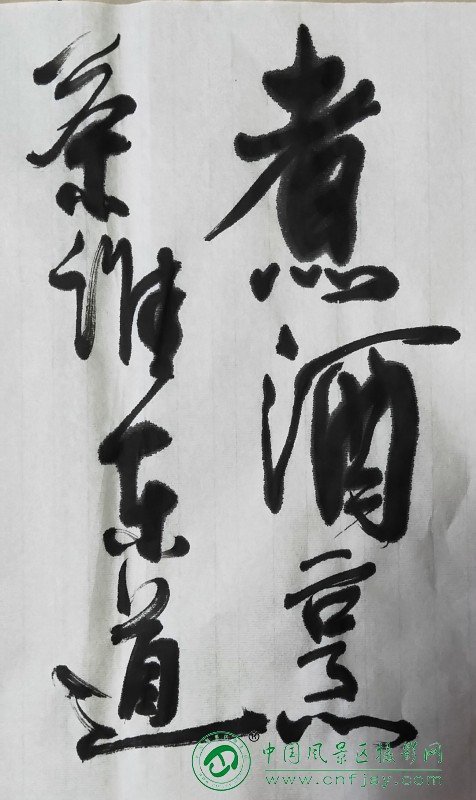 煮酒烹
茶谁东道
®
中国风景区摄影网
www.cnfjqy.com